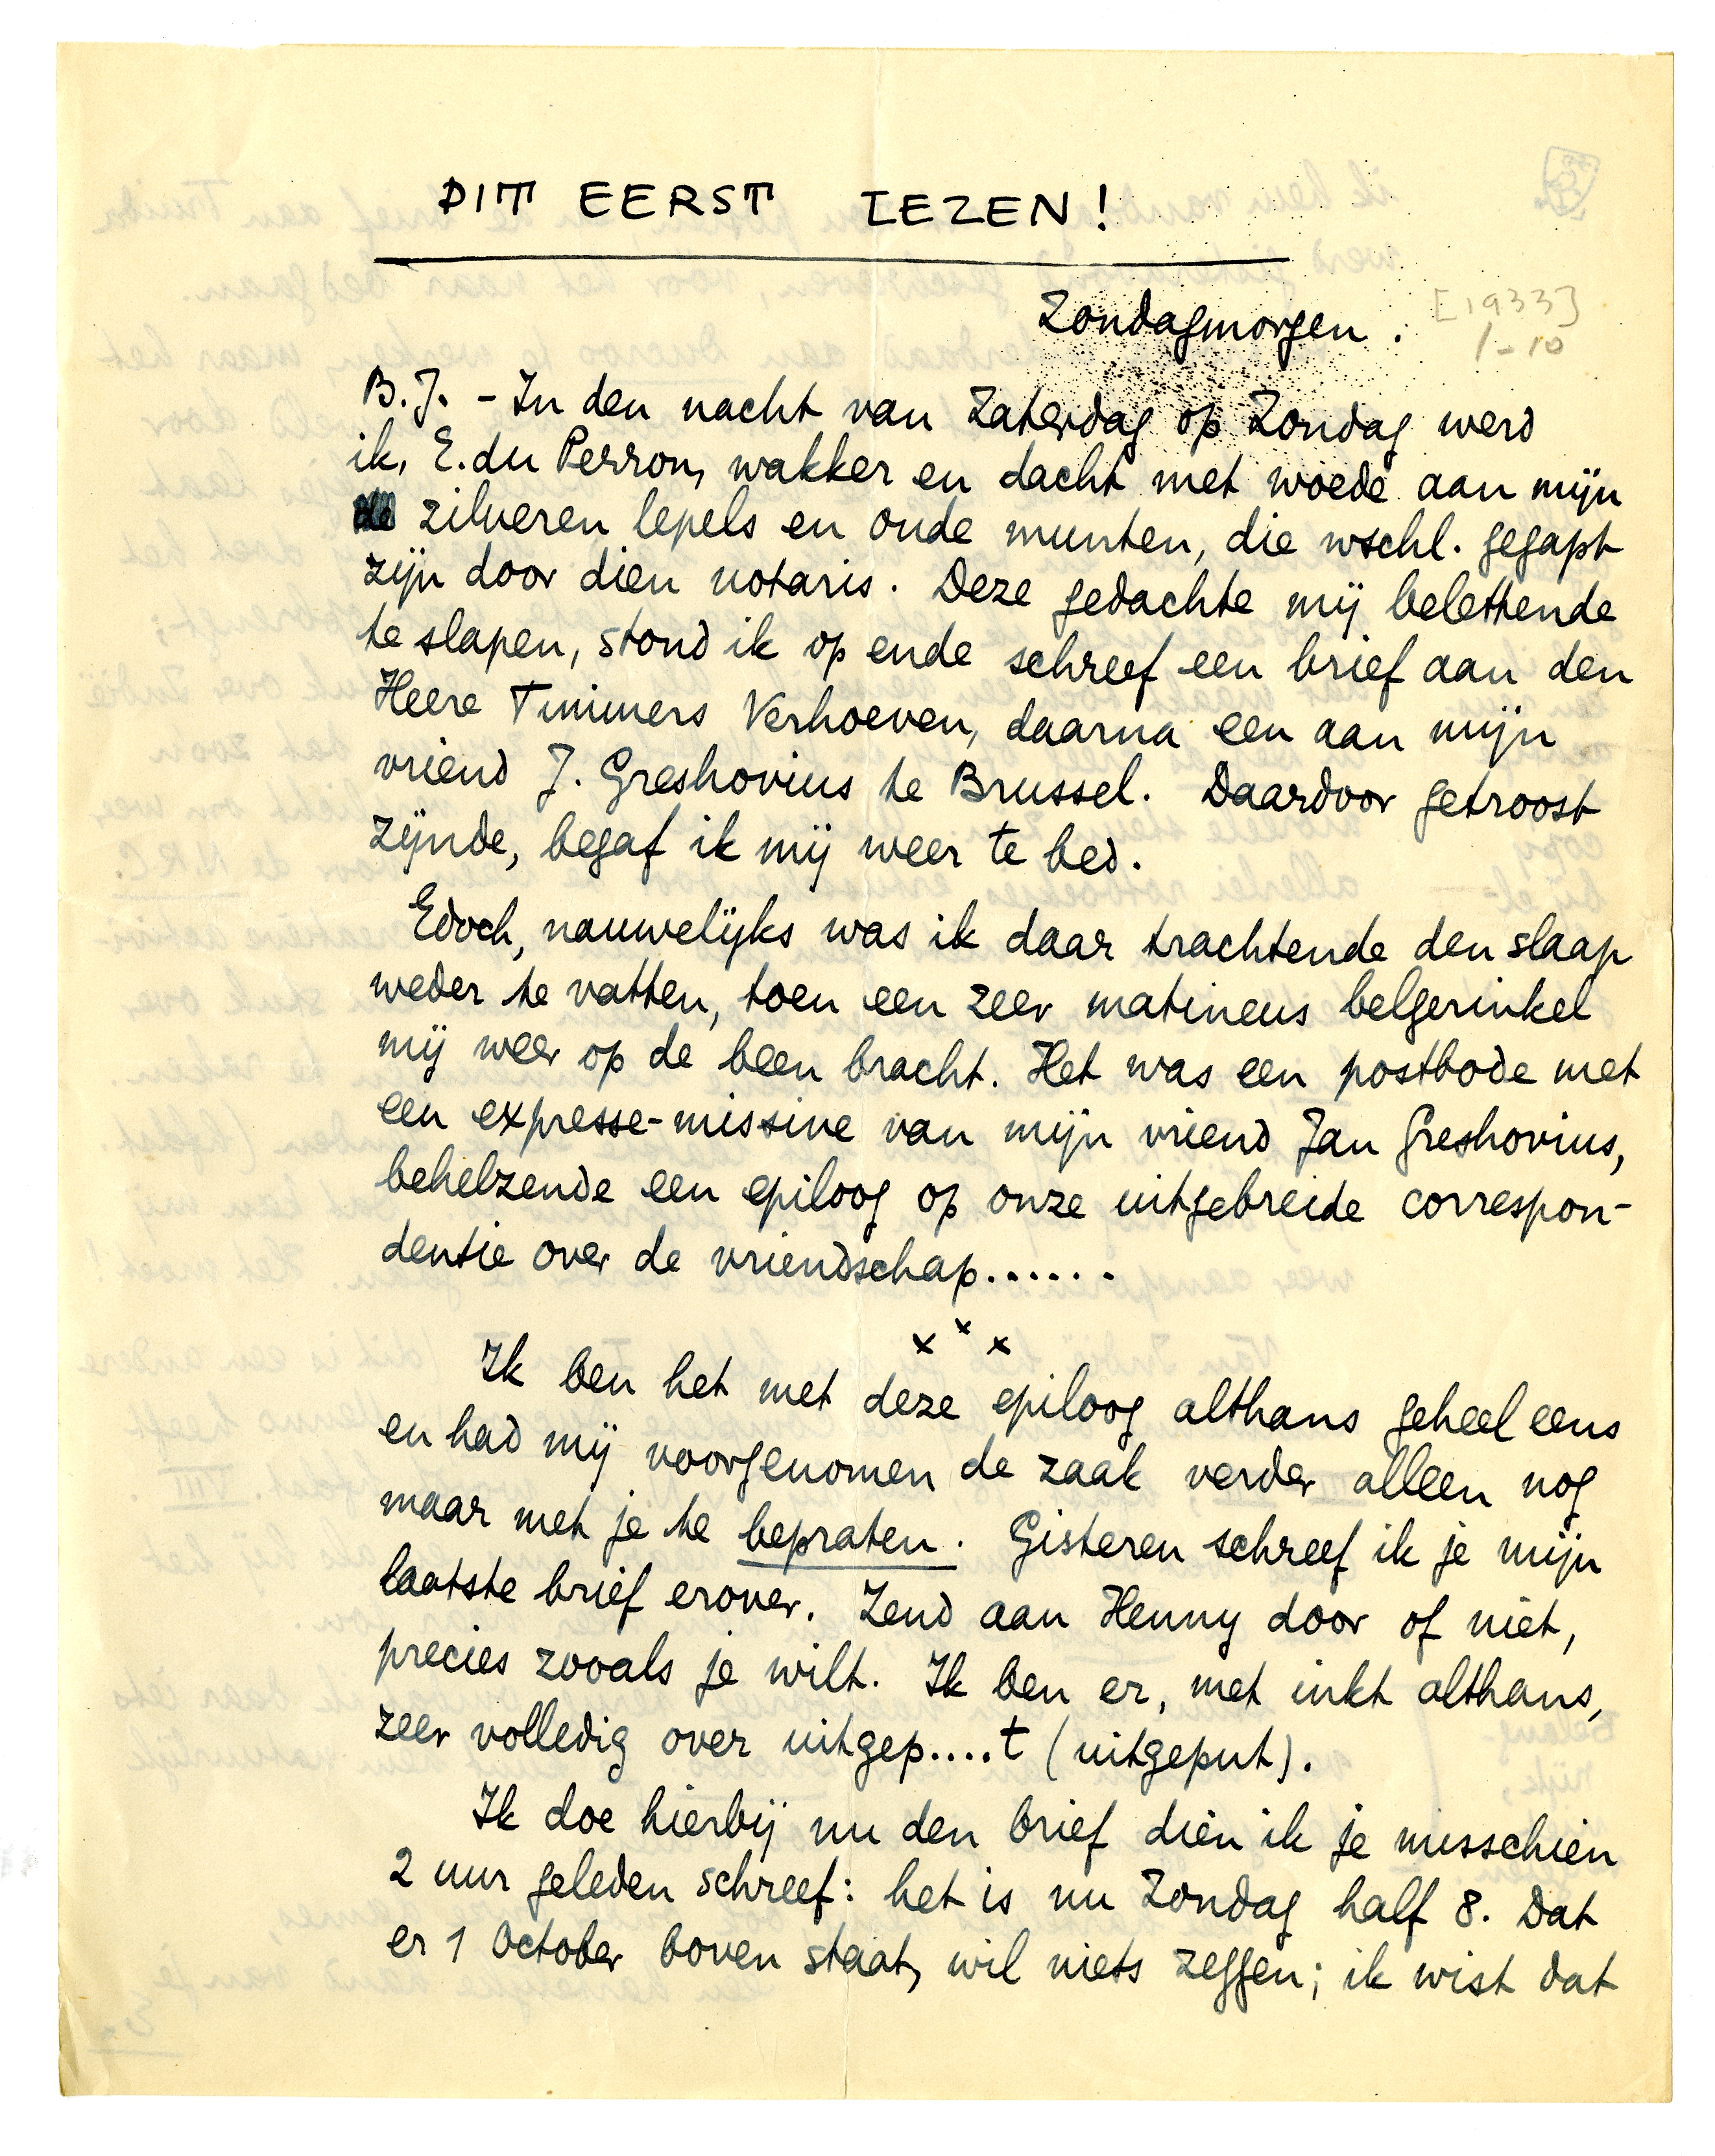 DIT EERST LEZEN!
Zondagmorgen.
[1933]
1-10
B.J. - In den nacht van Zaterdag op Zondag werd
ik, E. du Perron, wakker en dacht met woede aan mijn
zilveren lepels en oude munten, die wschl. gegapt
zijn door dien notaris. Deze gedachte mij belettende
te slapen, stond ik op ende schreef een brief aan den
Heere Timmers Verhoeven, daarna een aan mijn
vriend J. Greshovius te Brussel. Daardoor getroost
zijnde, begaf ik mij weer te bed.
Edoch, nauwelijks was ik daar trachtende den slaap
weder te vatten, toen een zeer matineus belgerinkel
mij weer op de been bracht. Het was een postbode met
een expresse-missive van mijn vriend Jan Greshovius,
behelzende een epiloog op onze uitgebreide correspon-
dentie over de vriendschap......
x x x
Ik ben het met deze epiloog althans geheel eens
en had mij voorgenomen de zaak verder alleen nog
maar met je te bepraten. Gisteren schreef ik je mijn
laatste brief erover. Zend aan Henny door of niet,
precies zooals je wilt. Ik ben er, met inkt althans,
zeer volledig over uitgep....t (uitgeput).
Ik doe hierbij nu den brief dien ik je misschien
2 uur geleden schreef: het is nu Zondag half 8. Dat
er 1 October boven staat, wil niets zeggen; ik wist dat